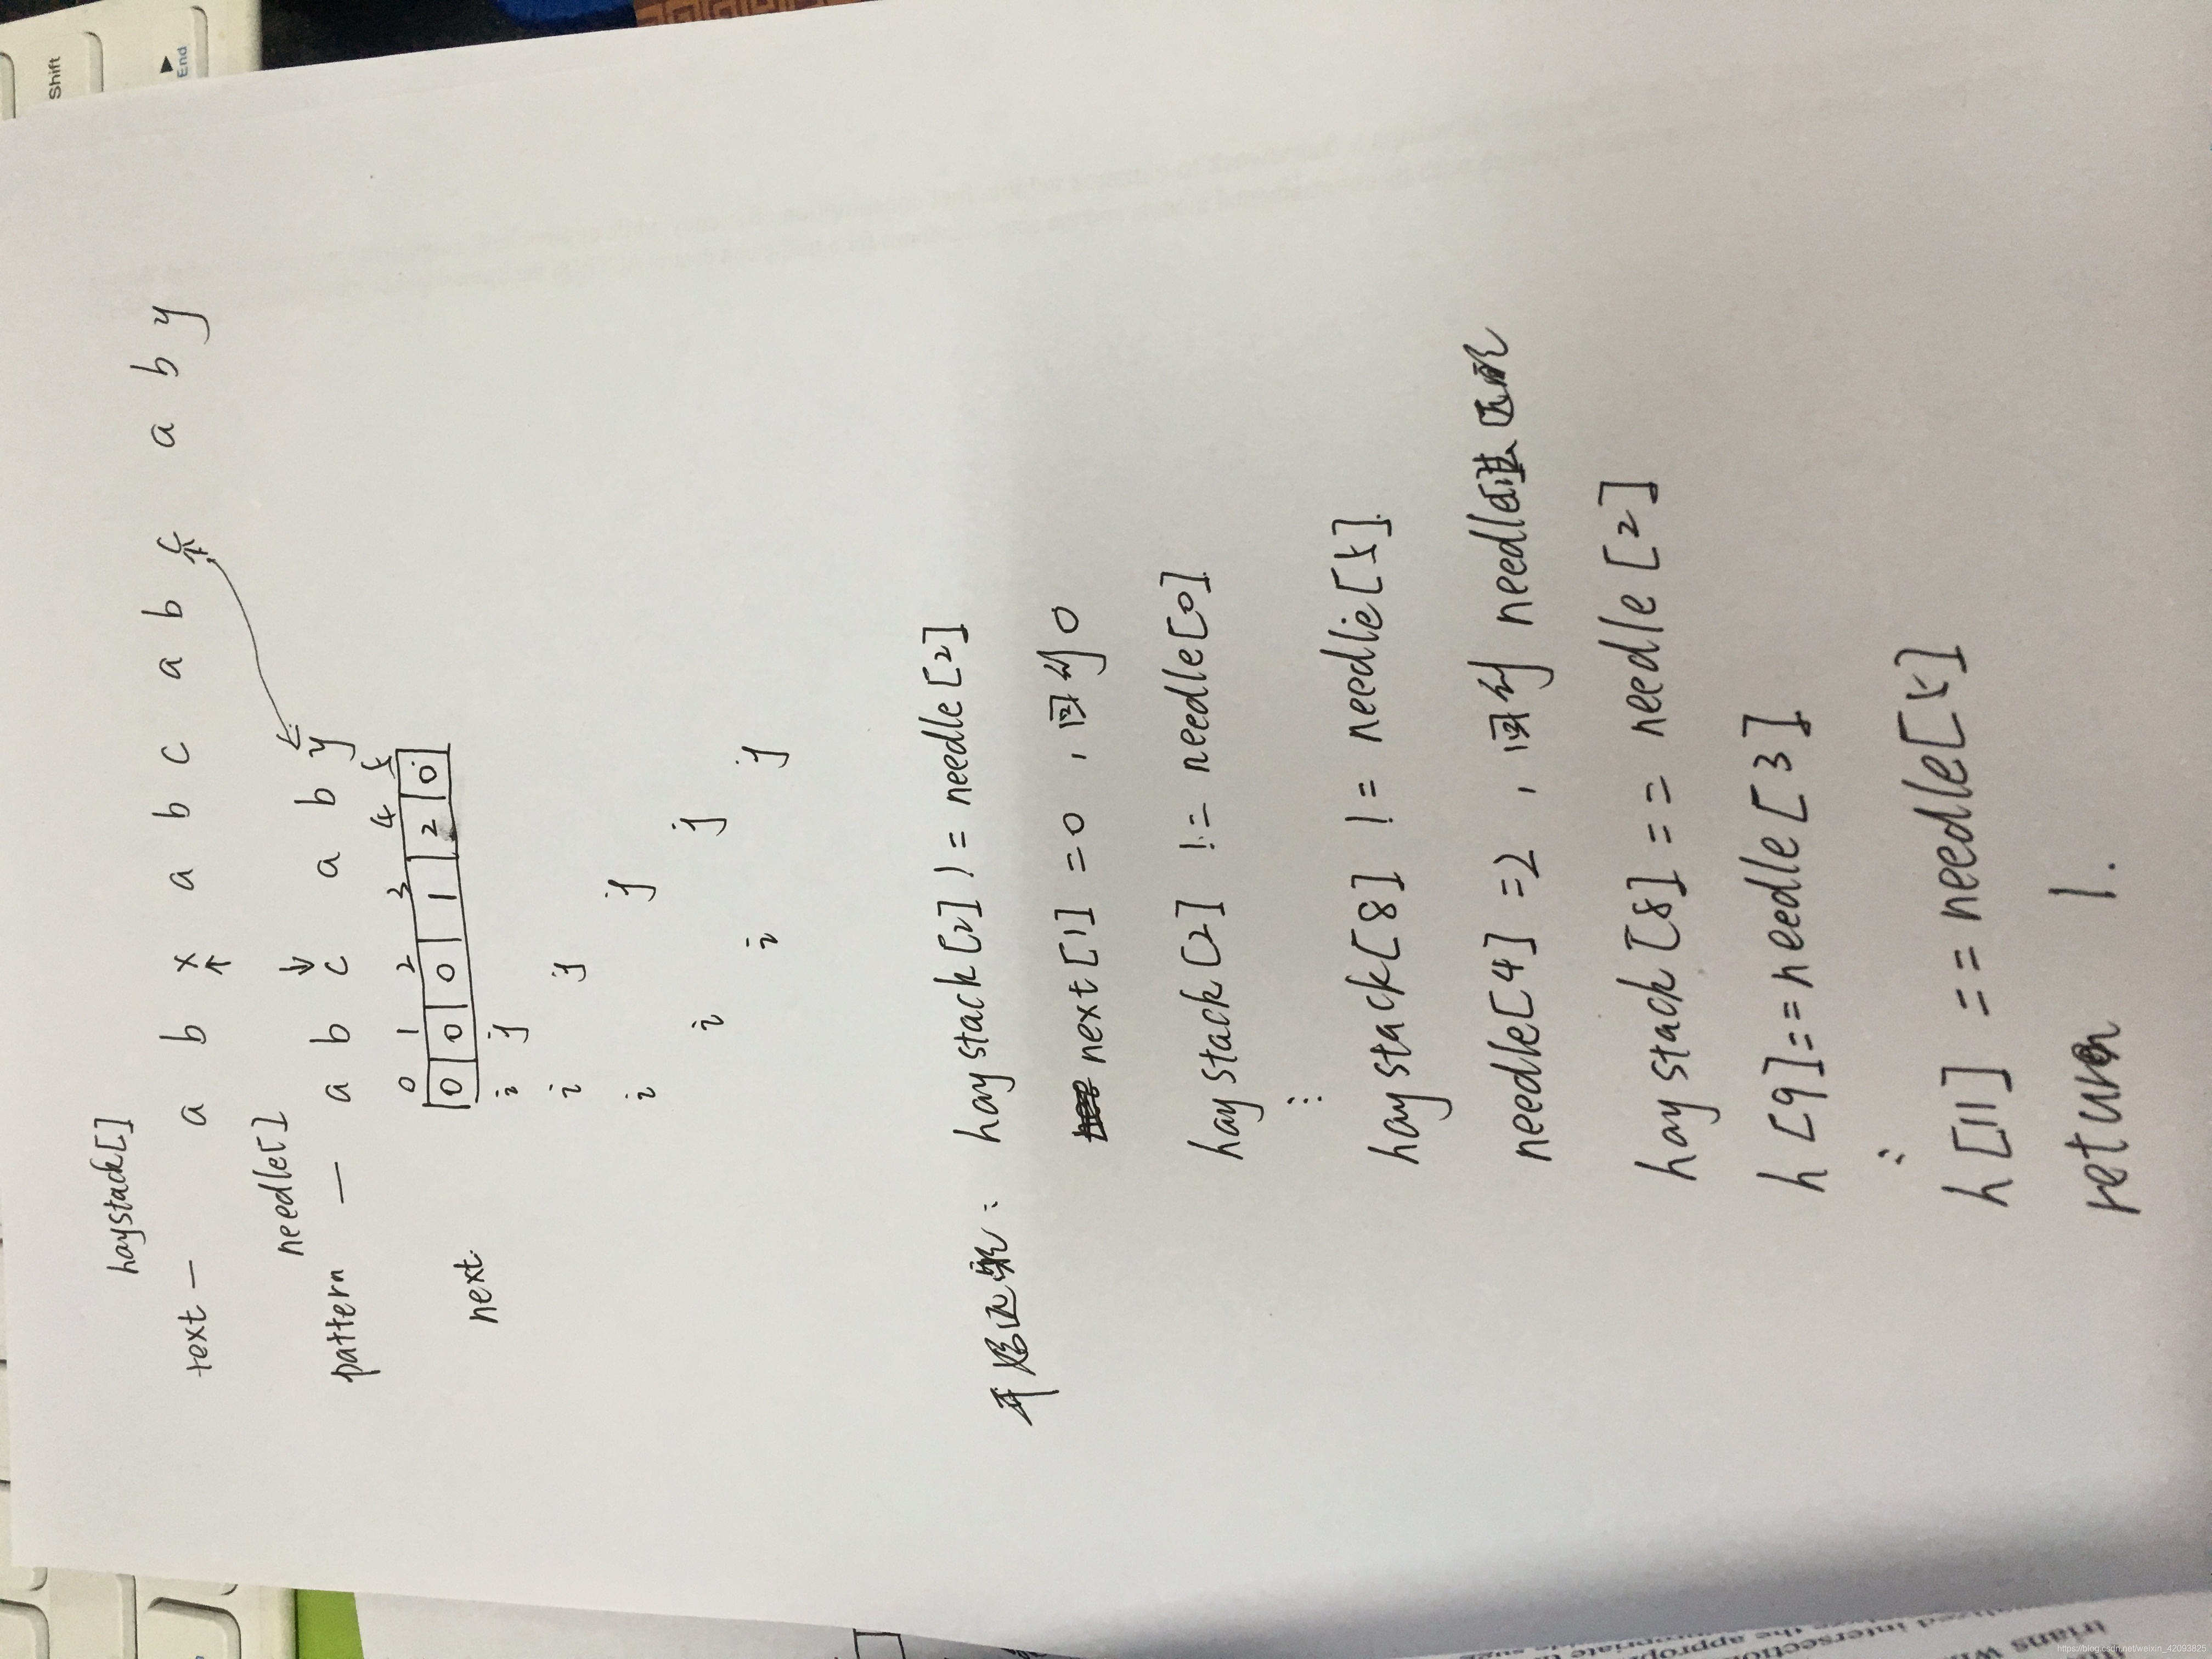 haystack[]
text — a b x a b c a b c a b y
needle[]
pattern — a b c a b y
0 1 2 3 4 5
next 0 0 0 1 2 0
i j
i j
i j
i j
i j
开始匹配: haystack[2] != needle[2]
next[1] = 0 , 回到 0
haystack[2] != needle[0]
⋮
haystack[8] != needlie[5].
needle[4] = 2 , 回到 needle 匹配
haystack[8] == needle[2]
h[9] == needle[3]
⋮
h[11] == needle[5]
return 1.
Shift
End
https://blog.csdn.net/weixin_42093825